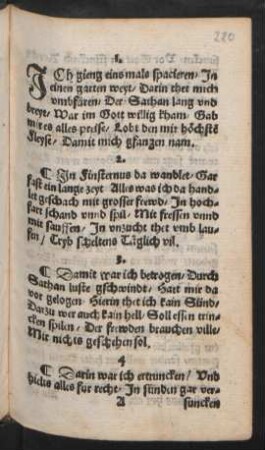 220
1.
ICh gieng eins mals spacieren / In
einen garten weyt / Darin thet mich
vmbfüren / Der Sathan lang vnd
breyt / War im Gott willig kham / Gab
mir es alles preise / Lobt den mit höchste
fleyse / Damit mich gfangen nam.
2.
¶ In Finsternus da wandlet / Gar
fast ein lange zeyt / Alles was ich da hand
let geschach mit grosser frewd / In hoch-
fart schand vnnd spil / Mit fressen vnnd
mit sauffen / In vnzucht thet vmb lau-
fen / Tryb scheltens Täglich vil.
3.
¶ Damit war ich betrogen / Durch
Sathan luste gschwindt / Hatt mir da
vor gelogen / Hierin thet ich kain Sünd /
Darzu wer auch kain hell / Soll essen trin-
cken spilen / Der frewden brauchen ville /
Mit nichts geschehen sol.
4
¶ Darin war ich ertruncken / Vnd
hielts alles fur recht / In sünden gar ver-
A suncken